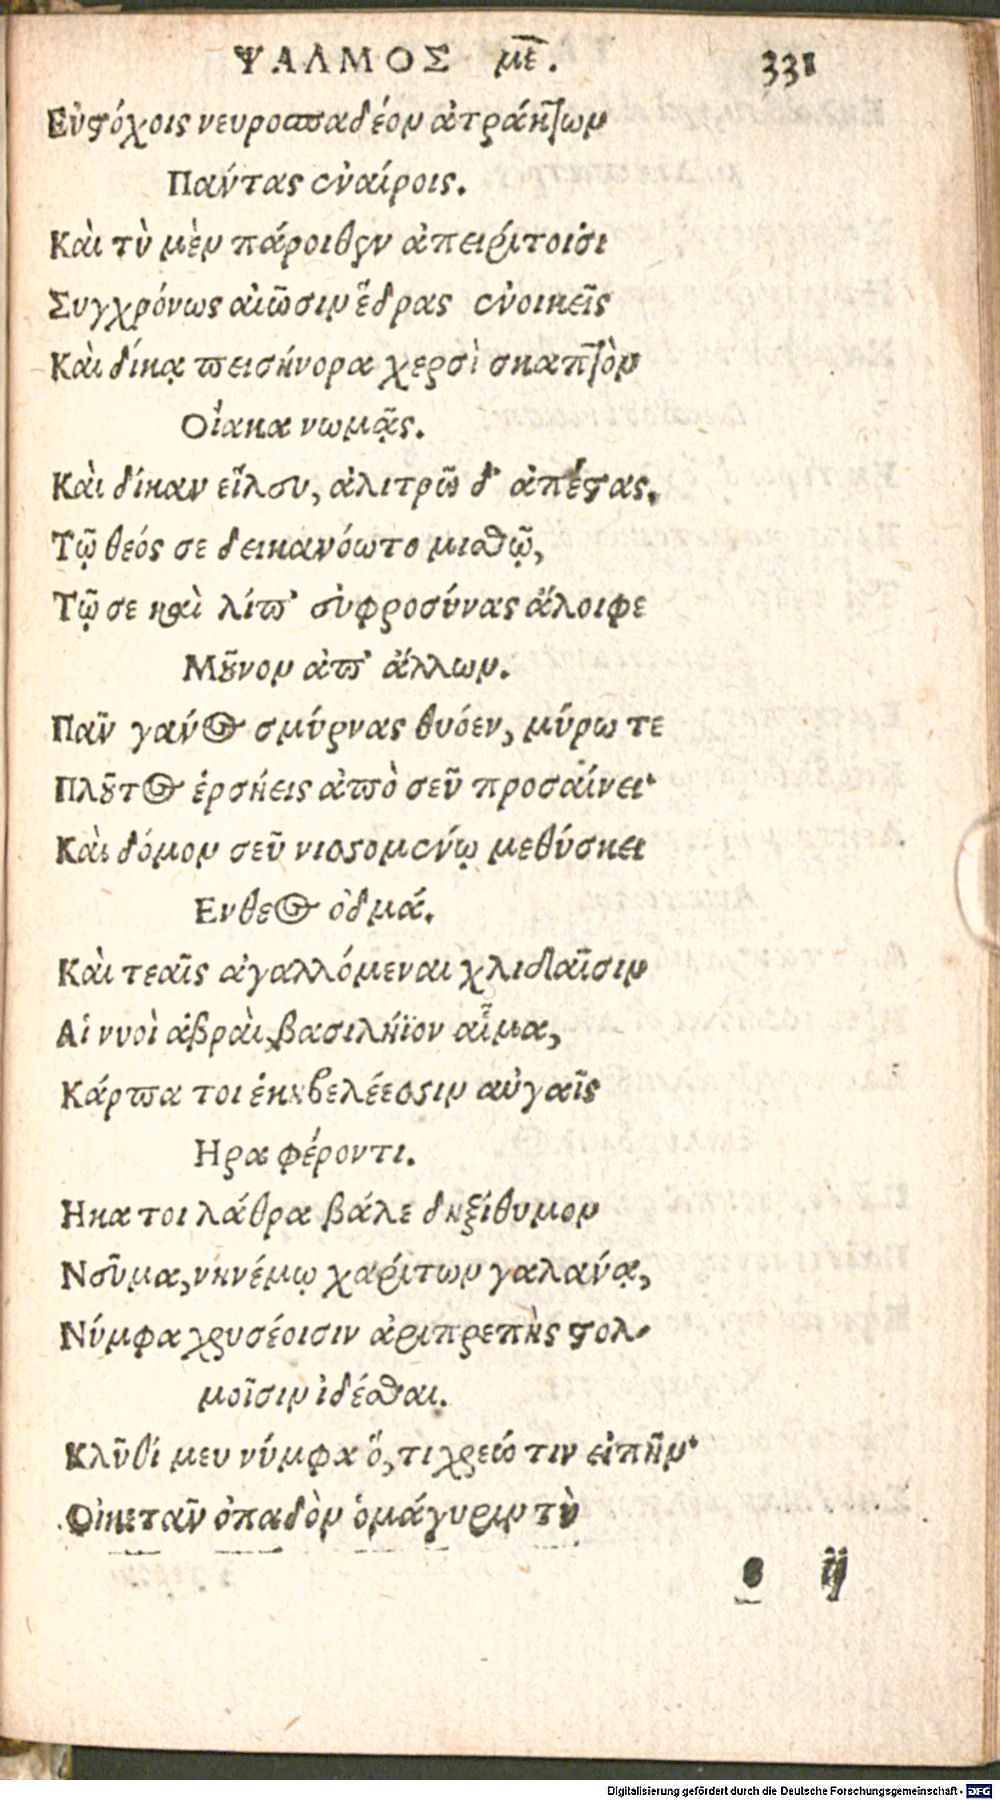 ΨΑΛΜΟΣ με̄. 331
Εὐστόχοις νευροσπαδέον ἀτράκτων
Πάντας ἐναίροις.
Καὶ τὺ μὲν πάροιθεν ἀπειρίτοισι
Συγχρόνως αἰῶσιν ἕδρας ἐνοικεῖς
Καὶ δίκᾳ πεισήνορα χερσὶ σκαπτὸν
Οἴακα νωμᾷς.
Καὶ δίκαν εἵλευ, ἀλιτρῶ δ' ἀπέστας,
Τῷ θεός σε δεικανόωτο μισθῷ,
Τῷ σε καὶ λίπ' εὐφροσύνας ἄλοιφε
Μοῦνον ἀπ' ἄλλων.
Πᾶν γάνος σμύρνας θυόεν, μύρω τε
Πλοῦτος ἑρσήεις ἀπὸ σεῦ προσαίνει·
Καὶ δόμον σεῦ νισσομένῳ μεθύσκει
Ενθεος ὀδμά.
Καὶ τεαῖς ἀγαλλόμεναι χλιδαῖσιν
Αἱ νυοὶ ἁβραὶ, βασιλήϊον αἷμα,
Κάρπα τοι ἑκηβελέεσσιν αὐγαῖς
Ηρα φέροντι.
Ηκα τοι λάθρα βάλε δηξίθυμον
Νεῦμα, νηνέμῳ χαρίτων γαλανᾷ,
Νύμφα χρυσέοισιν ἀριπρεπὴς στολ-
μοῖσιν ἰδέσθαι.
Κλῦθί μευ νύμφα ὅ, τι χρεώ τιν εἰπῆν·
Οἰκεταῖν ὀπαδὸν ὁμάγυριν τὺ
ij
Digitalisierung gefördert durch die Deutsche Forschungsgemeinschaft - DFG